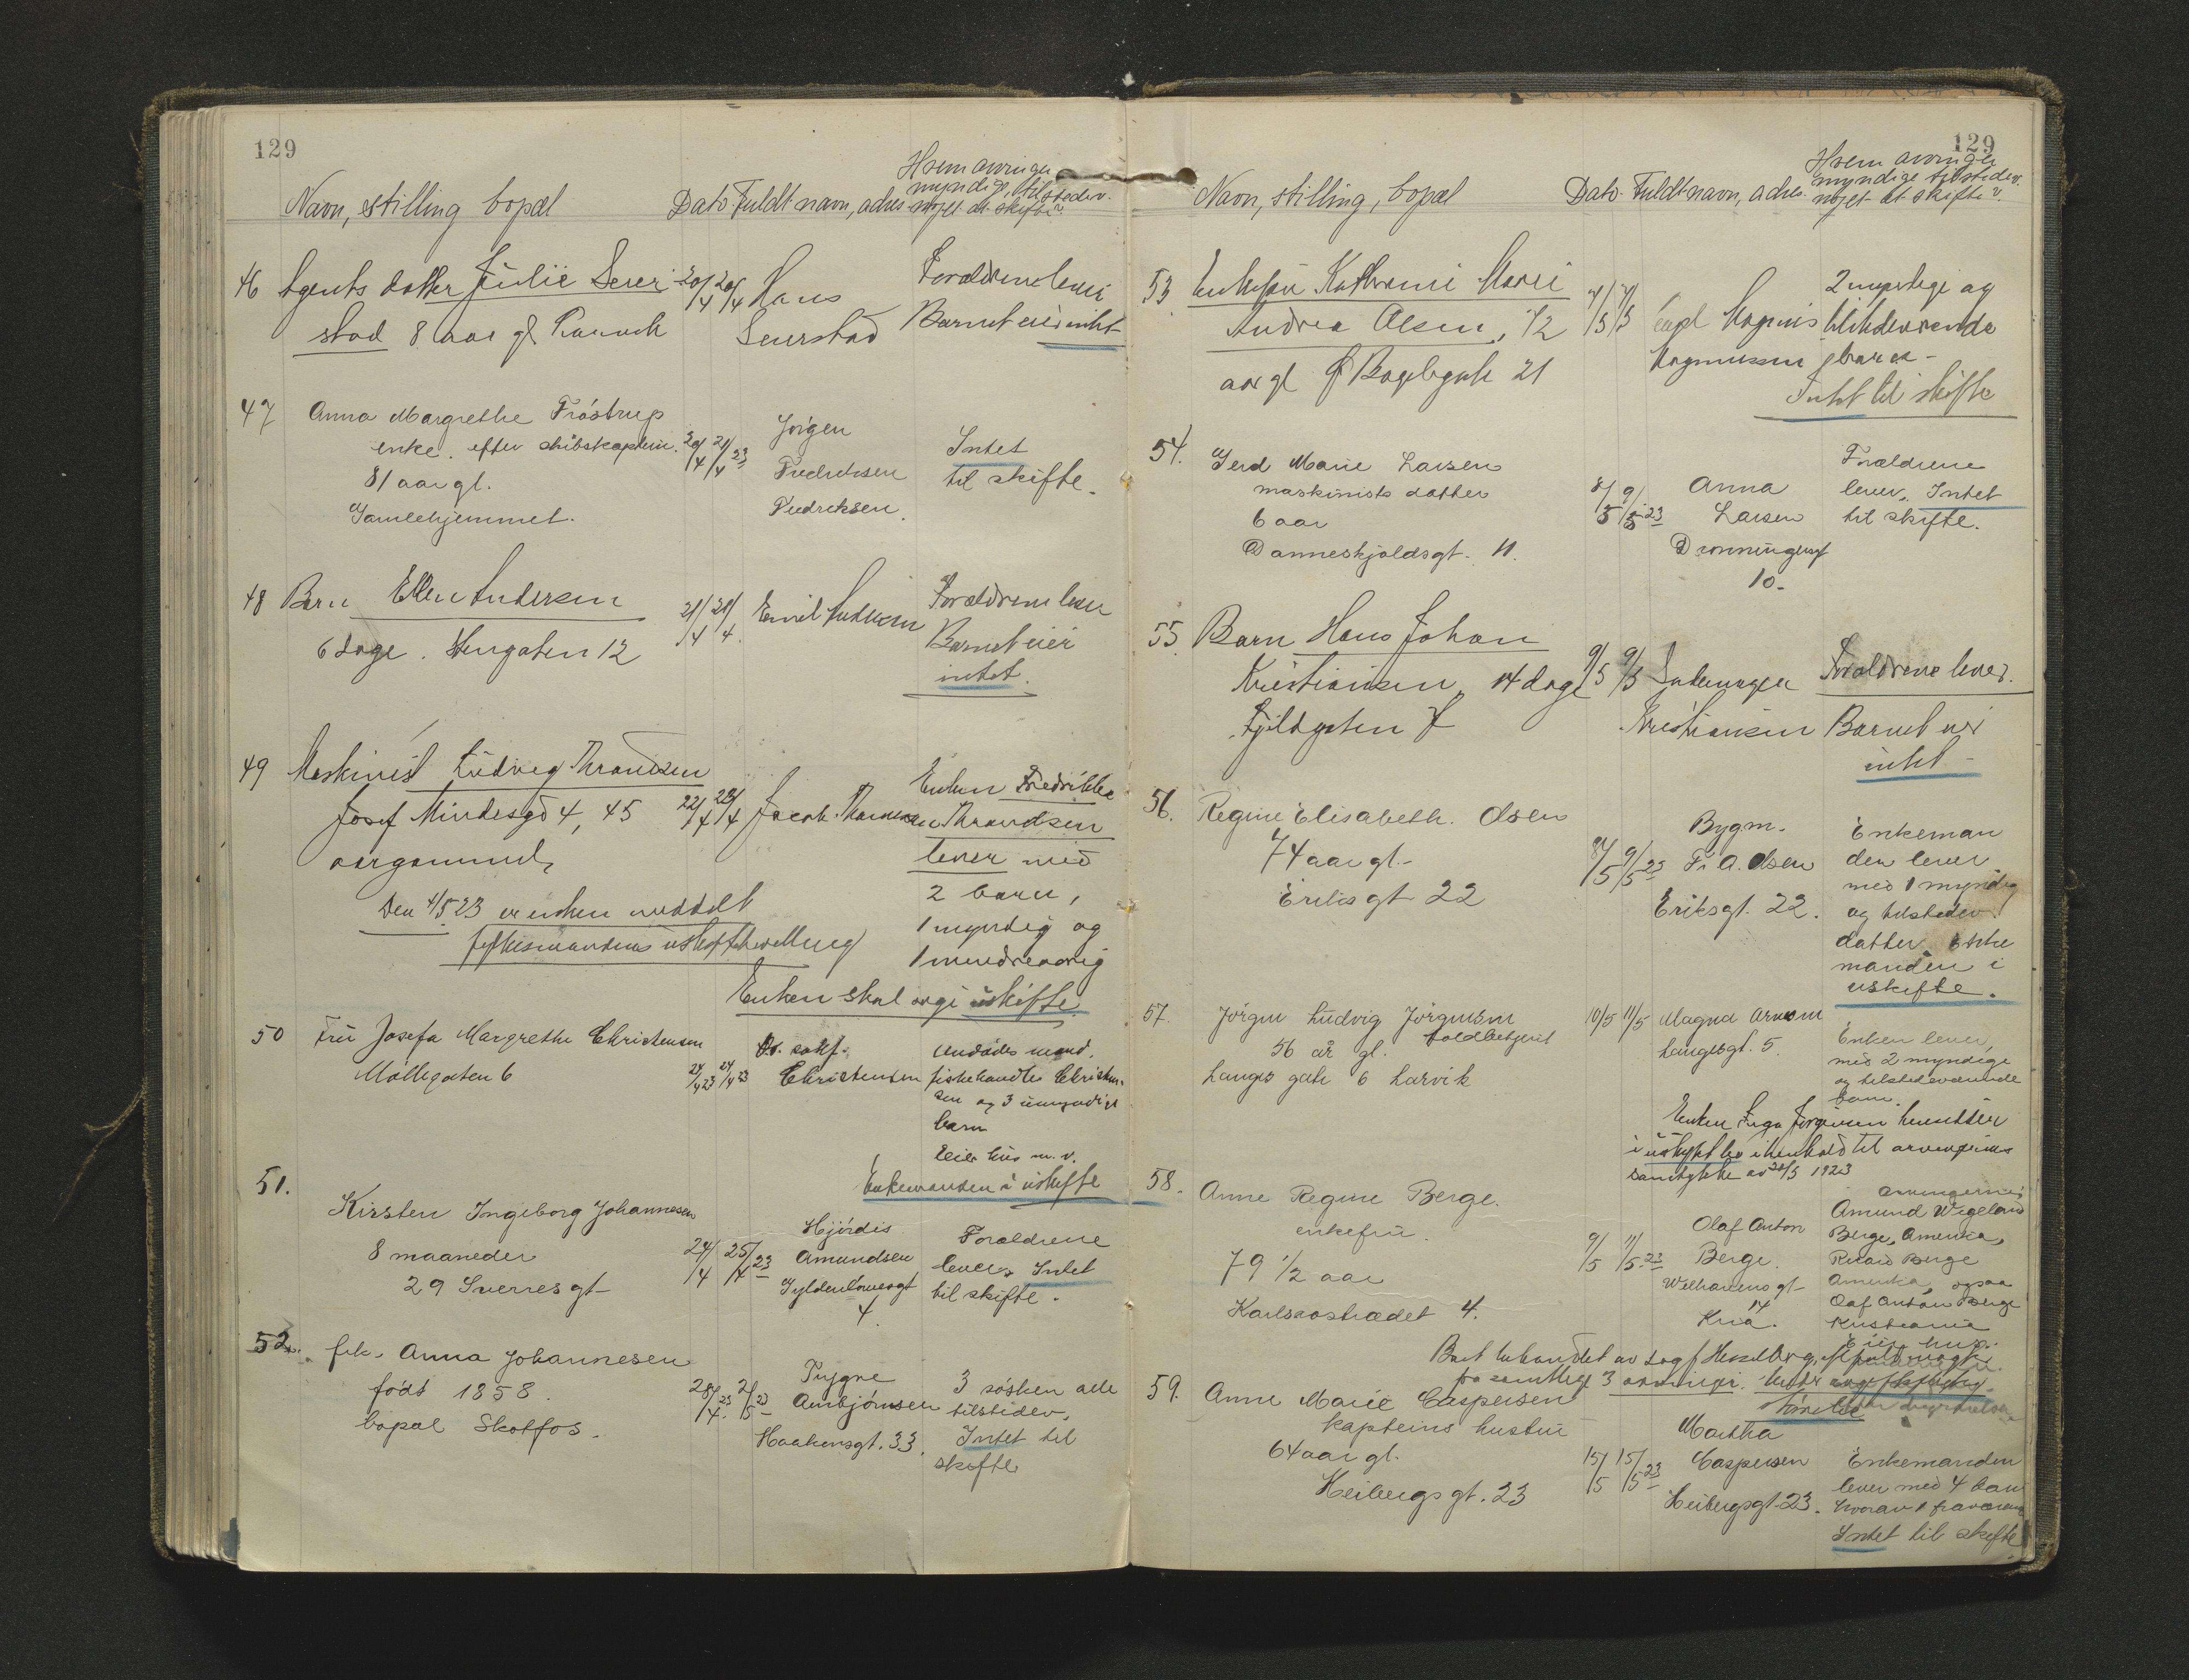 129
Navn, stilling bopæl Dato Fuldt navn, adres
Hvem arvinger
myndige, tilstedev.
noget at skifte?
46 Agents datter Julie Seier-
stad 8 aar gl
20/4 20/4 Hans
Seierstad
Forældrene lever
Barnet eier intet
47 Anna Margrethe Fróstrup
enke efter skibskaptein.
81 aar gl.
Gamlehjemmet.
20/4 21/4 23
Jörgen
Fredriksen
Fredriksen.
Intet
til skifte.
48 Barn Ellen Andersen
6 dage. Stengaten 12
21/4 21/4. Emil Andersen
Forældrene lever
Barnet eier
intet.
49 Maskinist Ludvig Thrandsen
Josef Mindesgd 4, 45
aar gammel,
Den 4/5 23 er enken meddelt
fylkesmandens uskiftebevilling
22/4 23/4 Jacob
Enken Fredrikke
Thrandsen
lever med
2 barn,
1 myndig og
1 mindreaarig
Enken skal i uskifte
50 Fru Josefa Margrethe Christensen
Möllegaten 6
24/4 23 24/4 23
Christensen
mand,
fiskehandler Christen-
sen og 3 umyndige
barn
Eier hus m. v.
Enkemanden i uskifte
51. Kirsten Ingeborg Johannesen
8 maaneder
29 Sverres gt-
24/4 25/4 23
Hjördis
Amundsen
Gyldenlövesgt
4.
Forældrene
lever, Intet
til skifte.
52. frk. Anna Johannesen
født 1858.
bopæl Skotfos.
28/4 23 2/5 23
Trygve
Arnbjörnsen
Haakensgt. 33.
3 sösken alle
tilstedev.
Intet til
skifte
129
Navn, stilling, bopæl Dato Fuldt navn, adres.
Hvem arvinger
myndige tilstedev.
noget at skifte?
53 Enkefru Kathrine Marie
Andrea Olsen, 72
aar gl
21
Magnus
Magnussen
2 myndige og
tilstedeværende
barn -
Intet til skifte
54. Gerd Marie Larsen
maskinists datter
6 aar
Danneskjoldsgt. 11.
8/5 9/5 23
Anna
Larsen
Dronningensgt
10.
Forældrene
lever, Intet
til skifte.
55. Barn Hans Johan
Kristiansen, 14 dage
Fjeldgaten 7
9/5 9/5
Kristiansen
Forældrene lever.
Barnet eier
intet -
56. Regine Elisabeth Olsen
74 aar gl.
Eriks gt 22
8/5 9/5 23
Bygm.
Fr. A. Olsen
Eriksgt. 22.
Enkeman
den lever
med 1 myndig
og tilstedev.
datter. Enke
manden i
uskifte.
57. Jörgen Ludvig Jörgensen
56 år gl. toldbetjent
Langes gate 6 Larvik
10/5 11/5 Magna Arnesen
Langesgt. 5.
Enken lever,
med 2 myndige
og tilstedeværende
barn.
Enken Inga Jörgensen hensitter
i uskiftet bo i henhold til arvingernes
samtykke av 20/5 1923
58. Anne Regine Berge.
enkefru.
79 1/2 aar
Karlsrostrædet 4.
9/5 11/5 23
Olaf Anton
Berge.
Welhavens gt-
14
Kria.
arvingerne:
Amund Wigeland
Berge, Amerika,
Rikard Berge
Amerika, ogsaa
Olaf Anton Berge
Kristiania
Eier hus.
Boet behandlet av
fra samtlige 3 arvinger.
59. Anne Marie Caspersen
kapteins hustru
64 aar gl.
Heibergs gt. 23
15/5 15/5 23
Martha
Caspersen
Heibergsgt 23.
Enkemanden
lever med 4 barn
hvorav 1 fraværende
Intet til skifte.